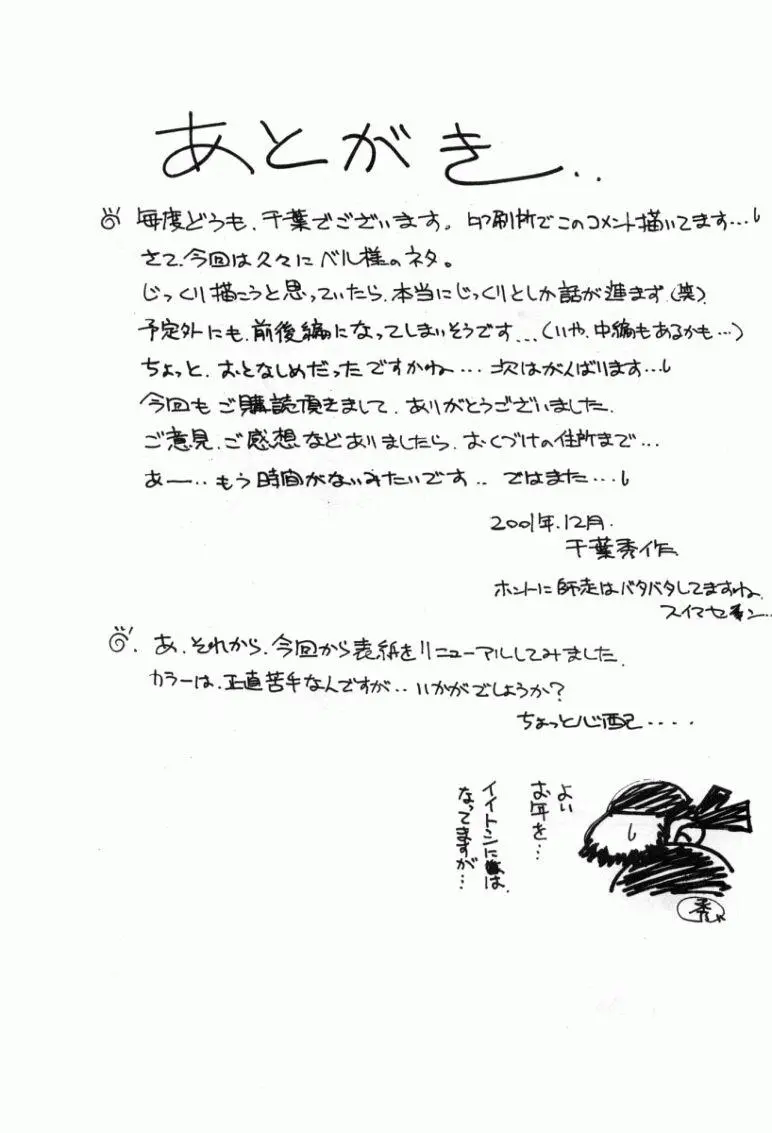 あとがき..
毎度どうも、千葉でございます。印刷所でこのコメント描いてます…
さて、今回は久々にベル様のネタ。
じっくり描こうと思っていたら、本当にじっくりとしか話が進まず(笑)、
予定外にも、前後編になってしまいそうです...(いや、中編もあるかも…)
ちょっと、おとなしめだったですかね…次はがんばります…
今回もご購読頂きまして、ありがとうございました。
ご意見、ご感想などありましたら、おくづけの住所まで…
あー‥もう時間がないみたいです‥ ではまた…
2001年.12月.
千葉秀作
ホントに師走はバタバタしてますね
スイマセン…
あ、それから、今回から表紙をリニューアルしてみました。
カラーは、正直苦手なんですが‥いかがでしょうか?
ちょっと心配....
よい
お年を…
イイトシには
なってますが…
秀